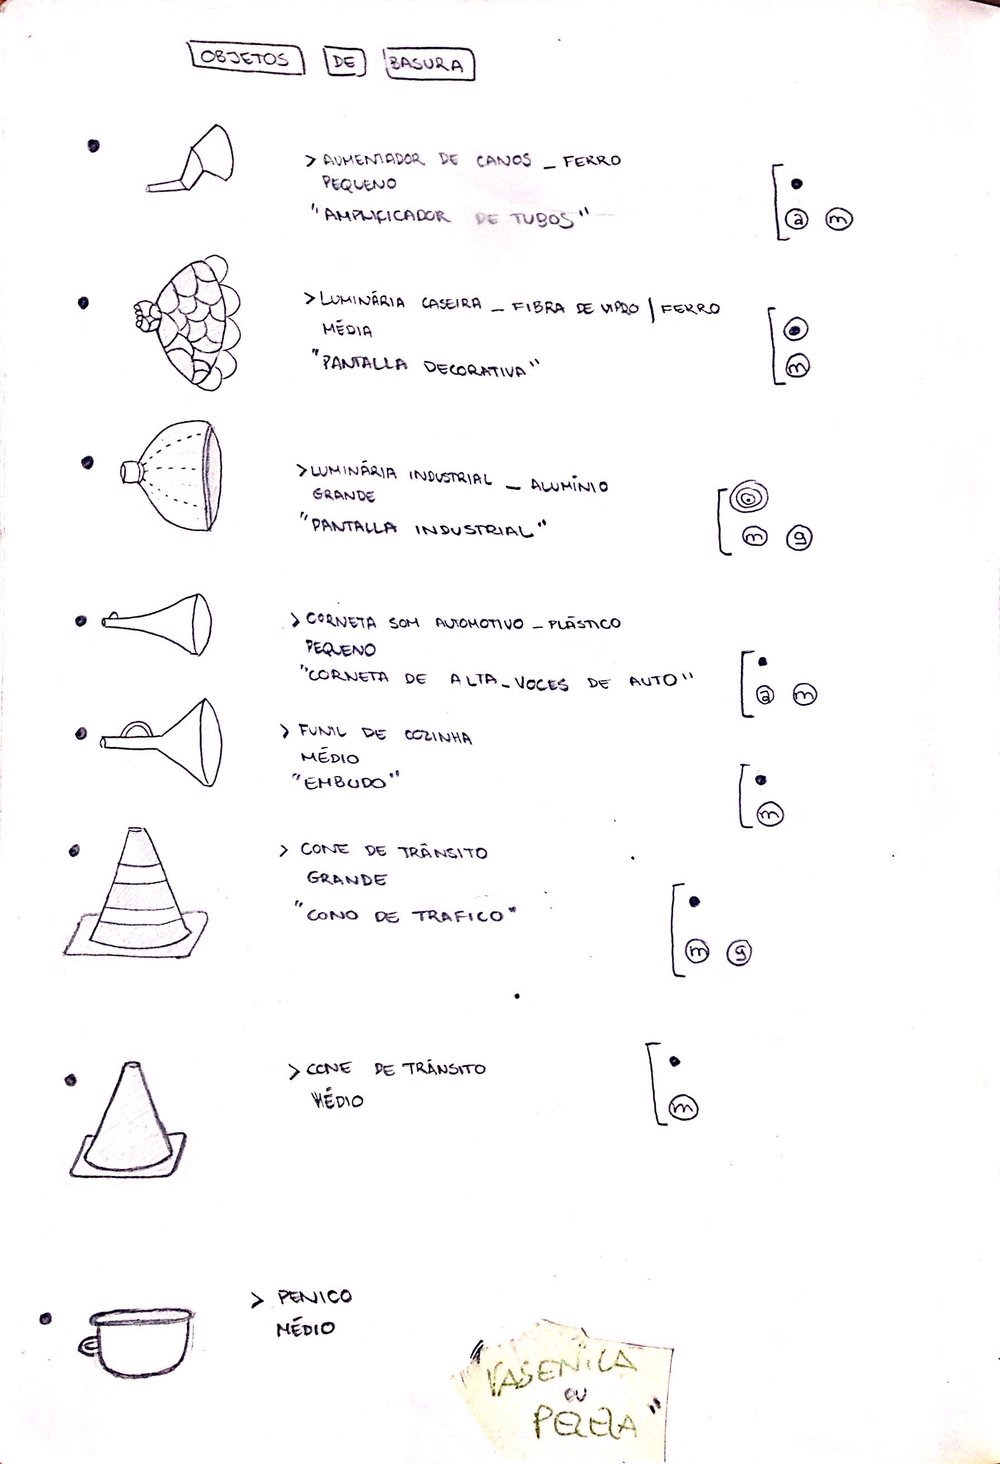 OBJETOS DE BASURA
> AUMENTADOR DE CANOS _ FERRO
PEQUENO
"AMPLIFICADOR DE TUBOS"
a m
> LUMINÁRIA CASEIRA _ FIBRA DE VIDRO / FERRO
MÉDIA
"PANTALLA DECORATIVA"
m
> LUMINÁRIA INDUSTRIAL _ ALUMÍNIO
GRANDE
"PANTALLA INDUSTRIAL"
m g
> CORNETA SOM AUTOMOTIVO _ PLÁSTICO
PEQUENO
"CORNETA DE ALTA_VOCES DE AUTO"
a m
> FUNIL DE COZINHA
MÉDIO
"EMBUDO"
m
> CONE DE TRÂNSITO
GRANDE
"CONO DE TRAFICO"
m g
> CONE DE TRÂNSITO
MÉDIO
m
> PENICO
MÉDIO
"VASENICA
OU
PELELA"